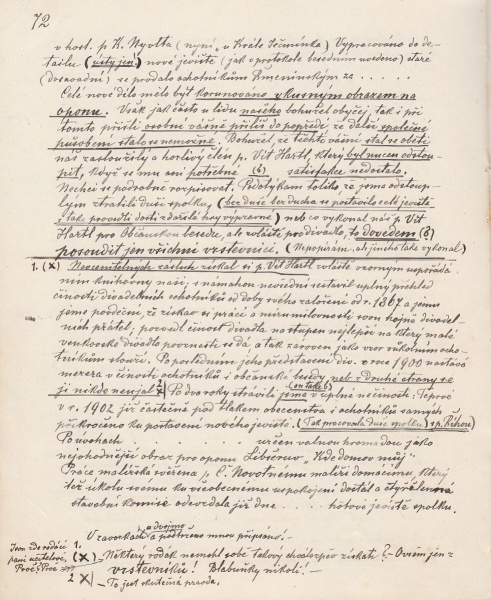 72
v host. p K. Nyvlta (nyní „u Krále Ječmínka) Vypracováno do de-
tailu (ústy jen) nové jeviště (jak v protokole besedním uvedeno) staré
(dosavadní) se prodalo ochotníkům Smečinským za .....
Celé nové dílo mělo být korunováno vkusným obrazem na
oponu. Však jak často u lidu našeho bohužel obyčej tak i při
tomto přišli osobní vášně příliš do popředí, že další společné
působení stalo se nemožné. Bohužel, že těchto vášní stal se obětí
náš zasloužilý a horlivý člen p. Vít Hartl, který byl nucen odstou-
pit, když se mu ani potřebné (6) satisfakce nedostalo.
Nechci se podrobně rozpisovat. Podotýkám toliko že jsme odstoup-
lým ztratili duši spolku, (bez duše bez ducha se postavilo celé jeviště
i také provedli dosti zdařilé hry výpravné) neb co vykonal náš p. Vít
Hartl pro Občanskou besedu, ale zvláště pro divadlo, to dovedem (8)
posoudit jen všichni vrstevníci. (Nepopírám, ale jiného také vykonal)
1. (X) Neocenitelných zásluh získal si p. Vít Hartl zvláště vzorným uspořádá-
ním knihovny naší, s námahou nevšední sestavil úplný přehled
činosti divadelních ochotníků od doby svého založení od r. 1867 a jemu
jsme povděčni, že získav si prací a mírumilovností svou hojně divadel-
ních přátel, povznesl činost divadla na stupeň nejlepší na který malé
venkovské divadlo povznésti se dá, a tak zároveň jako vzor okolním ocho-
tníkům sloužil. Po posledním jeho představení div. v roce 1900 nastává
mezera v činosti ochotníků i občanské besedy, neb z Druhé strany se
jí nikdo neujal 2 X Po dva roky strávili jsme (on také 6) v úplné nečinosti; teprvé
v r. 1902 již částečně pod tlakem obecenstva i ochotníků samých
přikročeno ku postavení nového jeviště. (Tak pracovala duše spolku) s p. Říhou)
Po úvahách ..... určen valnou hromadou jako
nejvhodnější obraz pro oponu Libšerův „Kde domov můj“
Práce malířská svěřena p Č. Novotnému malíři domácímu, který
též úkolu svému ku všeobecnému uspokojení dostál a čtyřčlenná
stavební komise odevzdala již dne .... hotové jeviště spolku.
V závorkách a dvojmo podtrženo mnou připsáno.
1.
(X) - Některý rodák nemohl sobě takový chvalozpěv získati? - Ovšem jen z
vrstevníků! Blabuňky nikolí. -
2 X - To jest skutečná pravda.